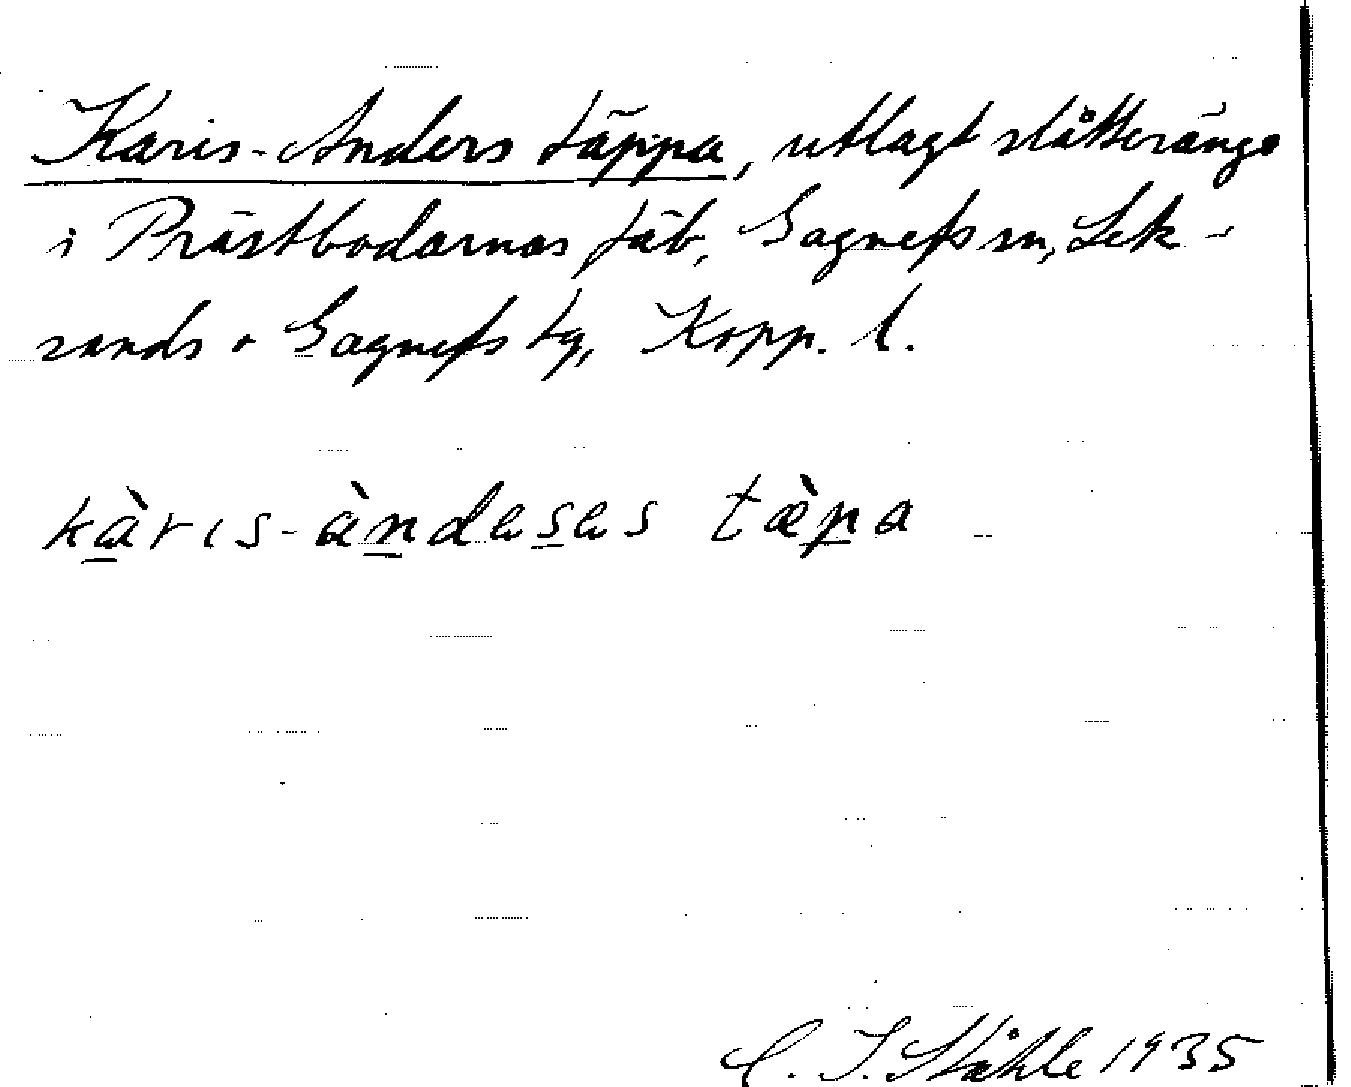 Karis-Anders täppa, utlagt slåtteränge
i Prästbodarnas fäb, Gagnefs sn, Lek-
sands o Gagnefs tg, Kopp. l.
kàrɩs-àndəsəs tæ̀pa
C. I. Ståhle 1935